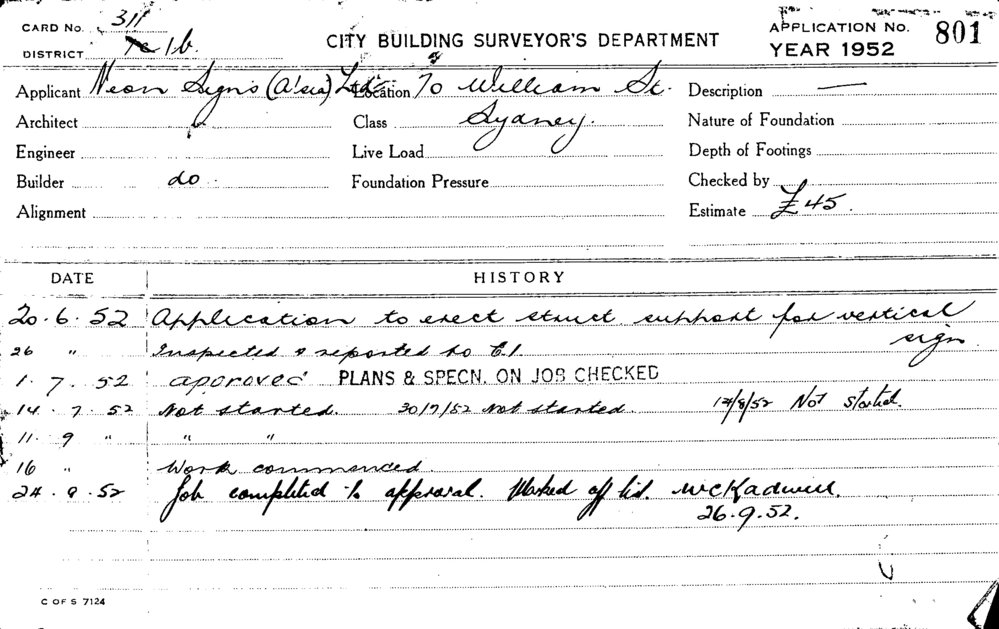 CARD No. 311
DISTRICT 16.
CITY BUILDING SURVEYOR'S DEPARTMENT
APPLICATION No. 801
YEAR 1952
Applicant Neon Signs (A'sia) Ltd. Location 70 William St. Description —
Architect Class Sydney. Nature of Foundation
Engineer Live Load Depth of Footings
Builder do Foundation Pressure Checked by
Alignment Estimate £45.
DATE HISTORY
20.6.52 Application to erect struct. support for vertical
sign
26 " Inspected & reported to C.I.
1.7.52 approved PLANS & SPECN. ON JOB CHECKED
14.7.52 Not started. 30/7/52 Not started. 12/8/52 Not started.
11.9 " " "
16 " Work commenced.
24.9.52 Job completed to approval. Marked off list.
26.9.52.
C OF S 7124